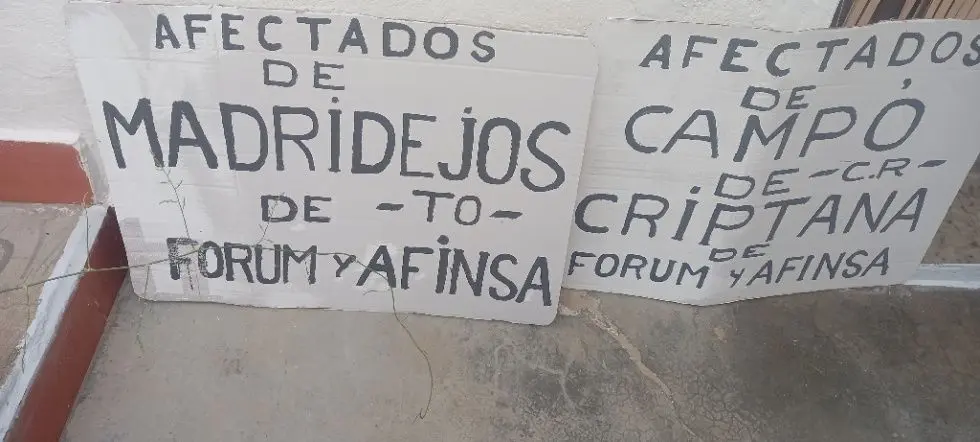 AFECTADOS
DE
MADRIDEJOS
DE -TO-
FORUM Y AFINSA
AFECTADOS
DE
CAMPO
DE -C.R-
CRIPTANA
DE
FORUM Y AFINSA